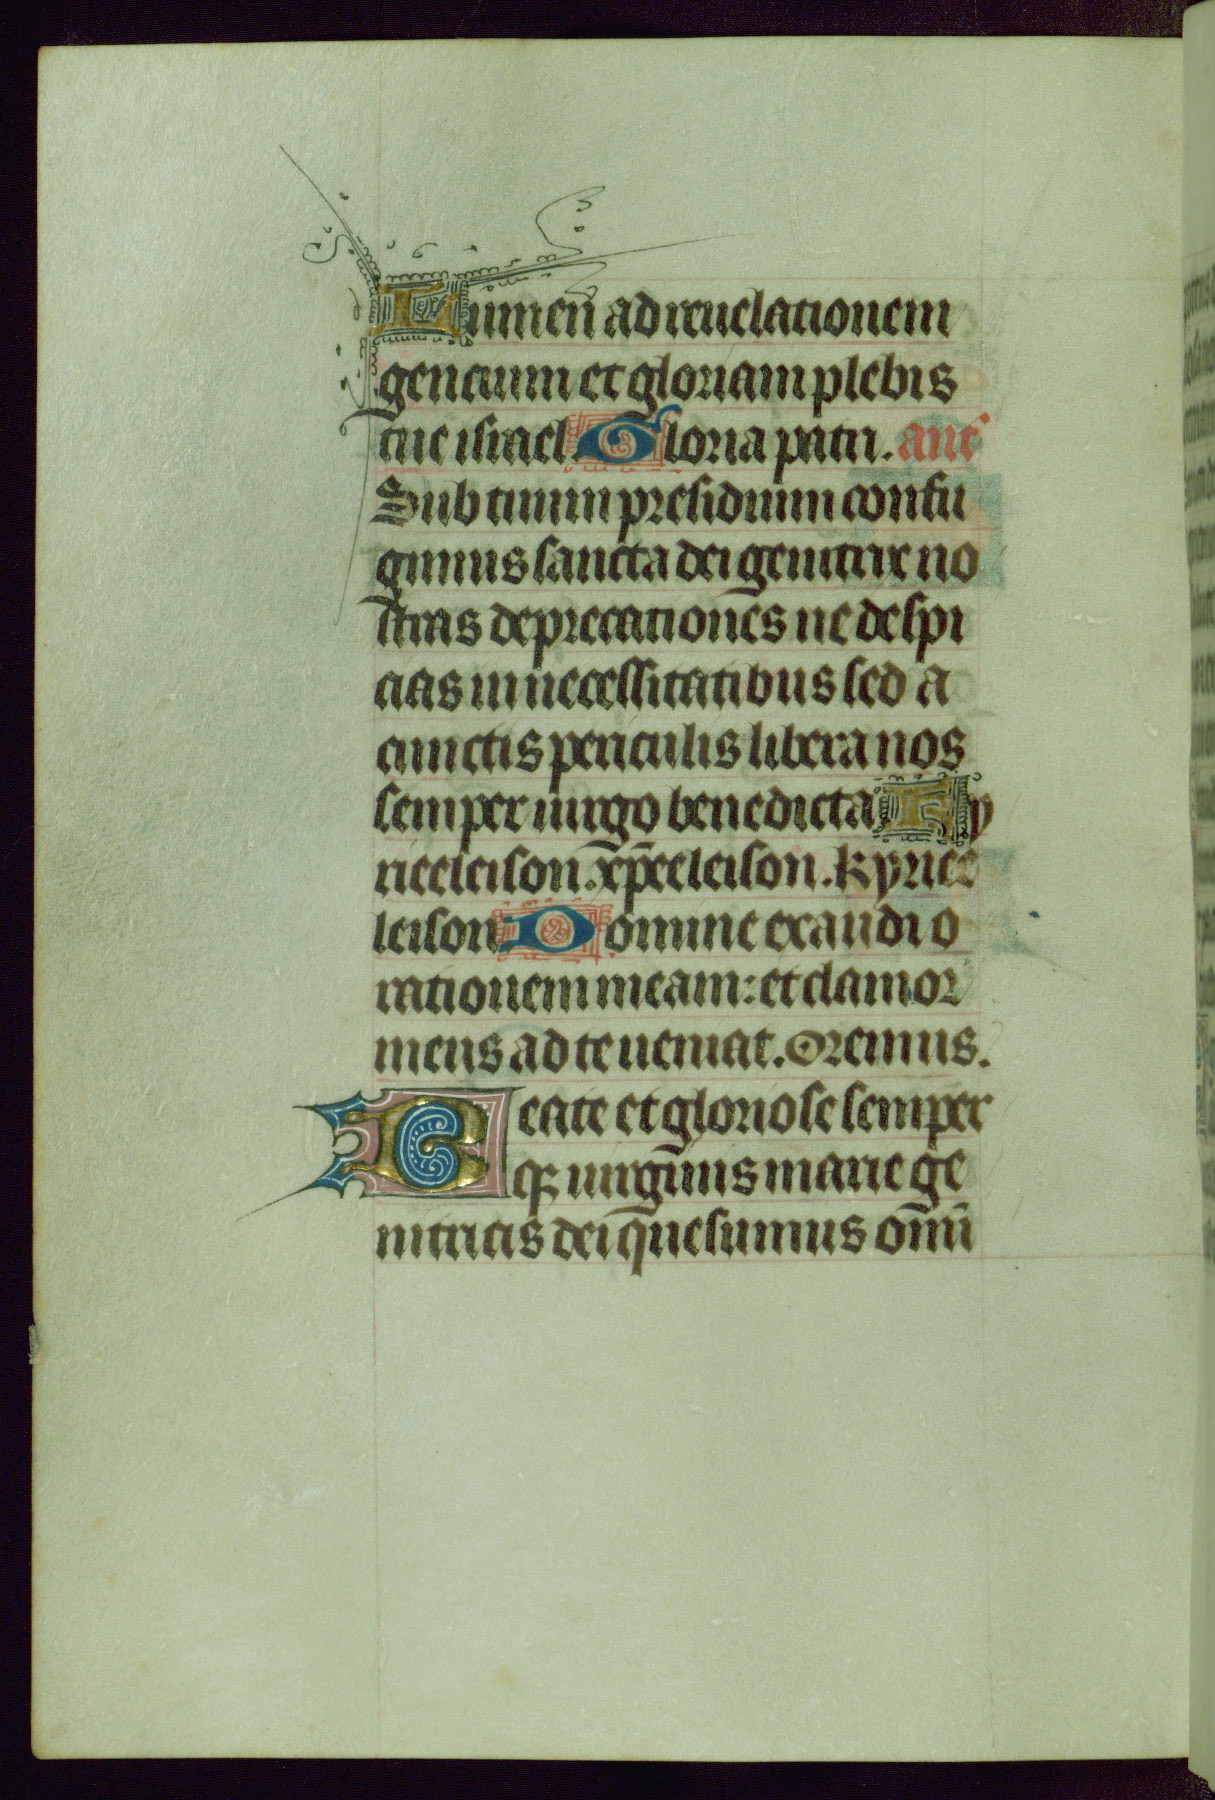 Lumen ad reuelationem
gencium et gloriam plebis
tue israel. Gloria patri. an̄e
Sub tuum presidium confu
gimus sancta dei genitrix no
stras deprecationes ne despi
cias in necessitatibus sed a
cunctis periculis libera nos
semper uirgo benedicta Ky
rieeleison. xp̄eeleison. Kyriee
leison Domine exaudi o
rationem meam: et clamor
meus ad te ueniat. Oremus.
Beate et gloriose semper
qꝫ uirginis marie ge
nitricis dei quesumus om̄i